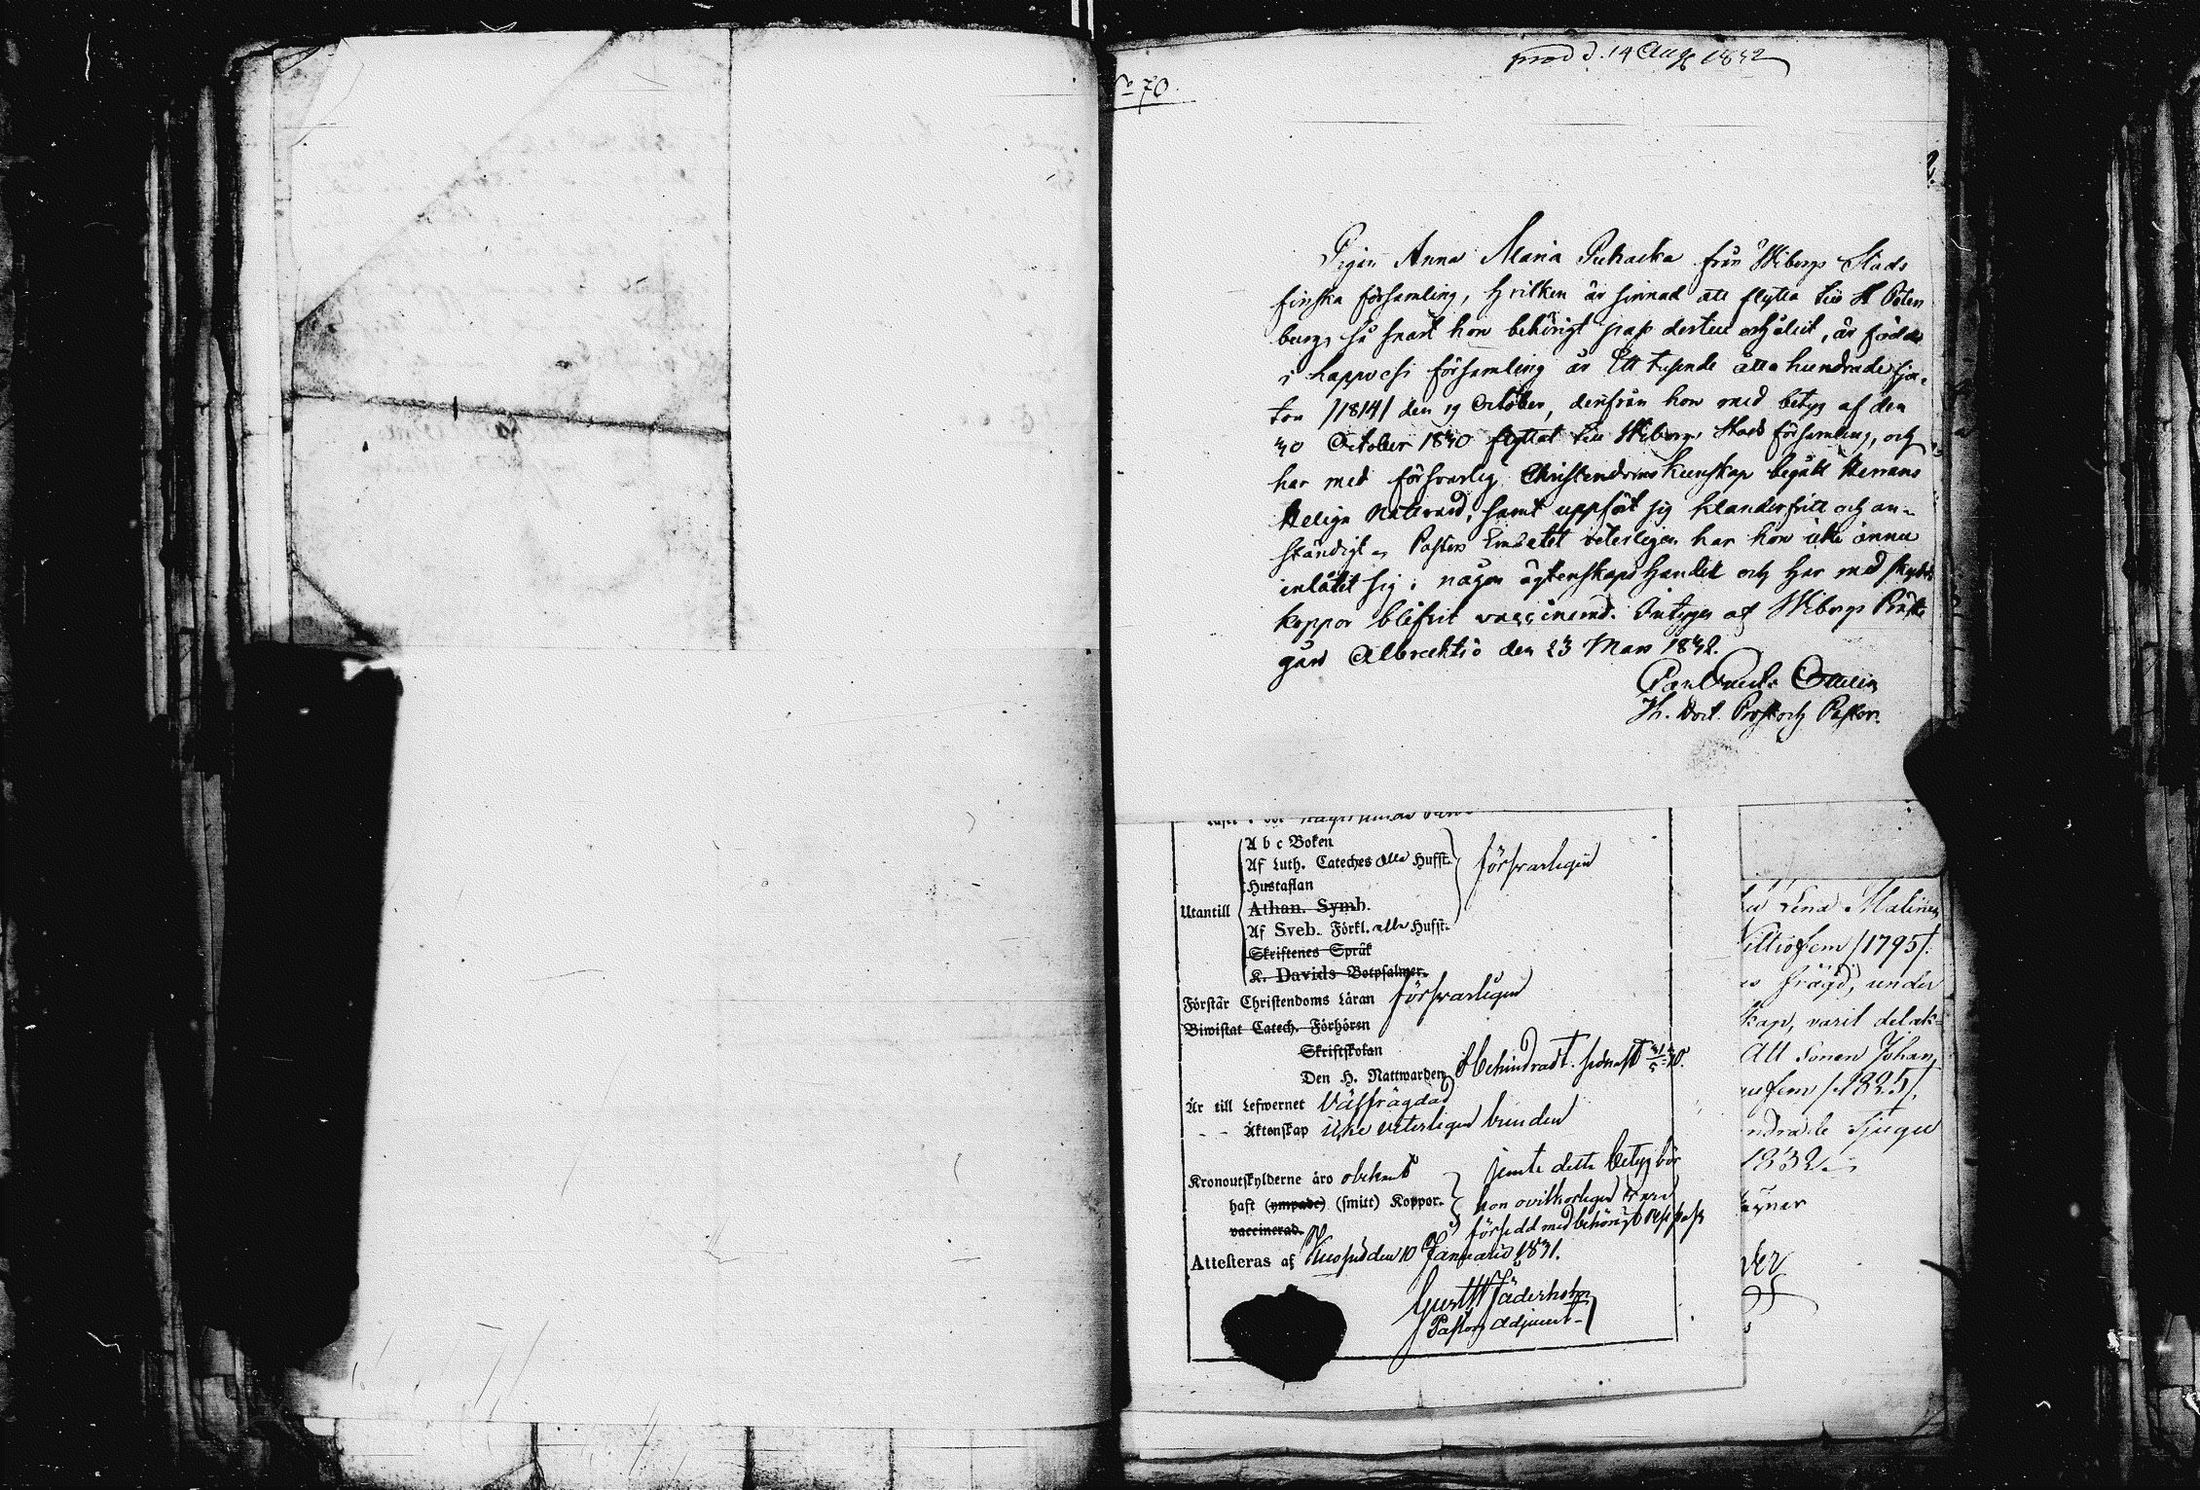 prod d. 14 Aug 1832
No 70.
Pigan Anna Maria Puhacka från Wiborgs Stads
finska församling, hvilken är sinnad att flytta till St Peters
burg, så snart hon behörigt pass dertill erhållit, är födde
i församling år Ett tusende åtta hundrade fjor-
ton /1814/ den 19 October, derifrån hon med betyg af den
30 October 1830 flyttat till Wiborgs Stads församling, och
har med försvarlig Christendoms kunskap begått Herrans
Heliga Nattvard, samt uppfört sig klanderfritt och an-
ständigt. Pastors Embetet veterligen har hon icke ännu
inlåtit sig i någon ägtenskaps handel och har med skydds
koppor blifvit vaccinerad. Intygas af Wiborgs Präste
gård Albrechtsö den 23 Mars 1832.
Th. Doct. Prost och Pastor.
A b c Boken
Af Luth. Cateches alla Hufst. försvarligen
Hustaflan
Utantill Athan. Symb.
Af Sveb. Förkl. alla Hufst.
Skriftenes Språk
K. Davids Botpsalmer.
Förstår Christendoms Läran försvarligen
Biwistat Catech. Förhören
Skriftskolan
Den H. Nattwarden Obehindradt. sednast
Är till Lefwernet Välfrägdad
- - Äktenskap icke veterligen bunden
Kronoutskylderne äro obekant jemte detta betyg bör
haft (ympade) (smitt) Koppor. hon ovilkorligen vara
vaccinerad. försedd med behörigt respass
Attesteras af den 10 Januarii 1831.
Gust Jäderholm
Pastors Adjunct
Lena Malinen
Nittiofem /1795/.
frägd, under
skap, varit delak-
Att Sonen Johan
fem /1825/,
ndrade Tjugu
1832